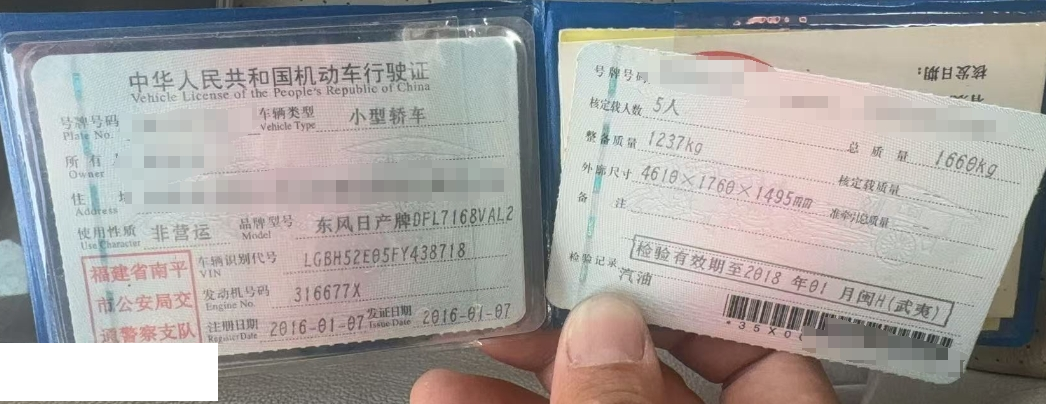 中华人民共和国机动车行驶证
Vehicle License of the People's Republic of China
号牌号码
Plate No.
车辆类型 小型轿车
Vehicle Type
所有
Owner
住
Address
使用性质 非营运 品牌型号 东风日产牌DFL7168VAL2
Use Character Model
福建省南平
市公安局交
通警察支队
车辆识别代号 LGBH52E05FY438718
VIN
发动机号码 316677X
Engine No.
注册日期 2016-01-07 发证日期 2016-01-07
Register Date Issue Date
号牌号码
核定载人数 5人
整备质量 1237kg 总质量 1660kg
外廓尺寸 4610×1760×1495mm 核定载质量 --
备注 准牵引总质量 --
检验有效期至2018年01月闽H(武夷)
检验记录 汽油
*35X0
核发日期: